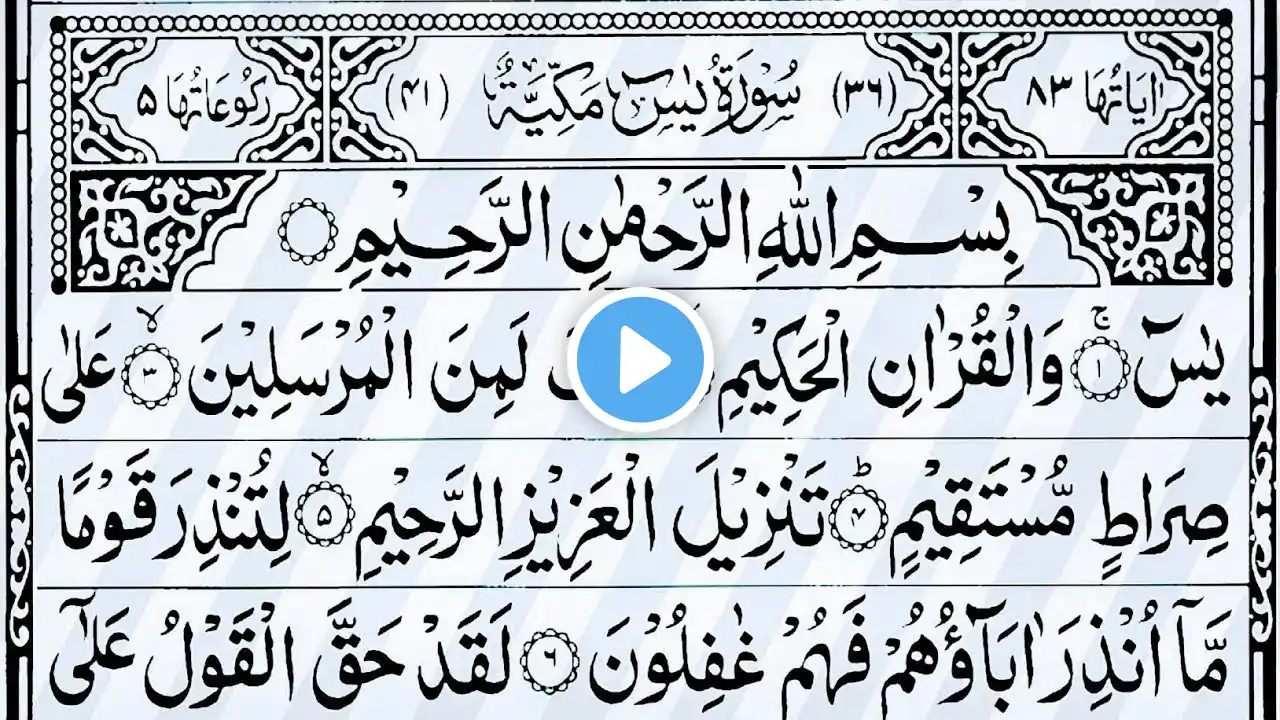 اٰيَاتُهَا ٨٣ (٣٦) سُوْرَةُ يٰسٓ مَكِّيَّةٌ (٤١) رَكُوْعَاتُهَا ۵
بِسْمِ اللّٰهِ الرَّحْمٰنِ الرَّحِيْمِ
يٰسٓ ۚ ﴿۱﴾ وَالْقُرْاٰنِ الْحَكِيْمِ لَمِنَ الْمُرْسَلِيْنَ ۙ ﴿۳﴾ عَلٰى
صِرَاطٍ مُّسْتَقِيْمٍ ؕ ﴿۴﴾ تَنْزِيْلَ الْعَزِيْزِ الرَّحِيْمِ ۙ ﴿۵﴾ لِتُنْذِرَ قَوْمًا
مَّآ اُنْذِرَ اٰبَآؤُهُمْ فَهُمْ غٰفِلُوْنَ ﴿۶﴾ لَقَدْ حَقَّ الْقَوْلُ عَلٰٓى